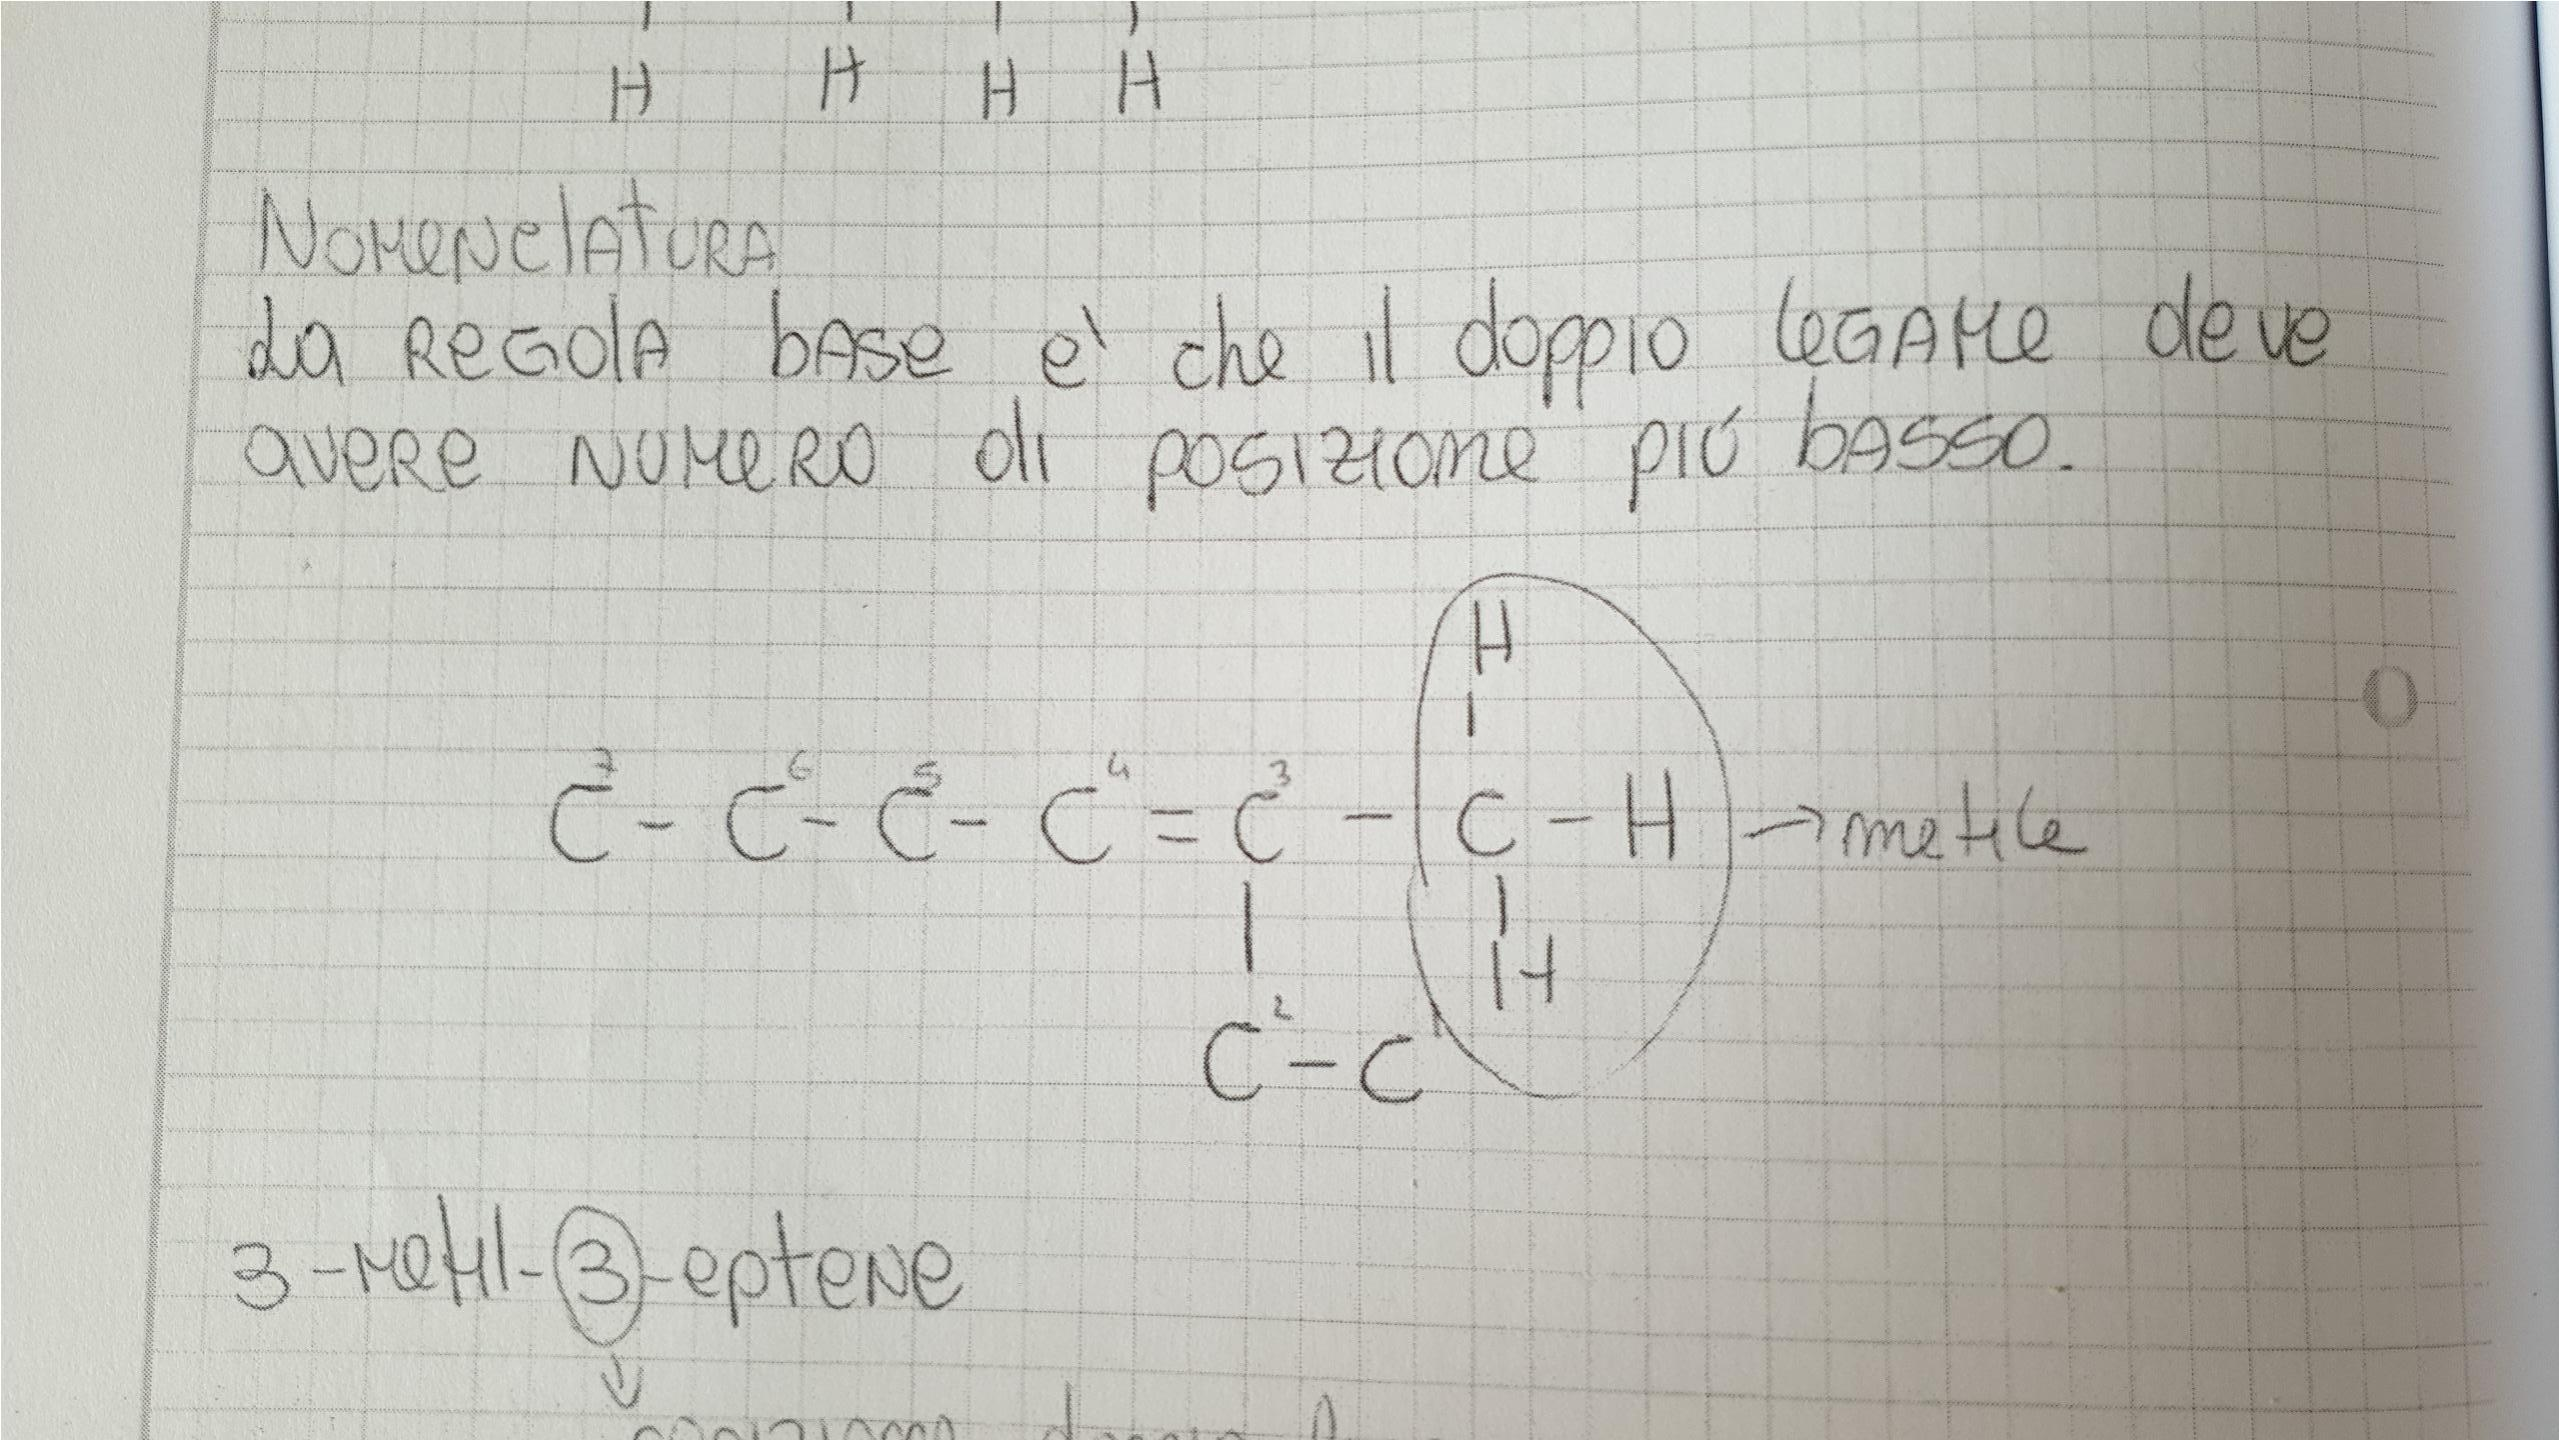 H H H H
NOMENCLATURA
La REGOLA BASE e' che il doppio LEGAME deve
avere NUMERO di posizione più BASSO.
H
7 6 5 4 3
C - C - C - C = C - C - H → metile
H
2 1
C - C
3-Metil-3-eptene